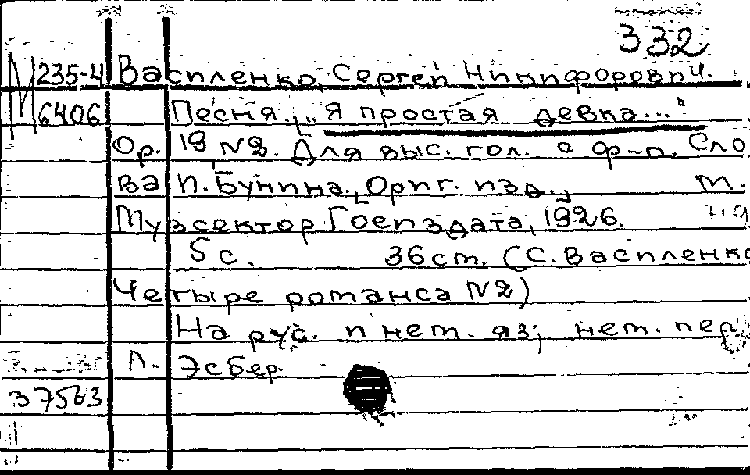 332
М 235-4 Василенко, Сергей Никифорович.
6406 Песня. „Я простая девка..."
Ор. 19 №2. Для выс. гол. с ф-п. Сло
ва И. Бунина. [Ориг. изд.] М.
Музсектор Госиздата, 1926.
5 с. 36 cm. (С. Василенко
Четыре романса №2)
На рус. и нем. яз; нем. пер.
Л. Эсбер
37563